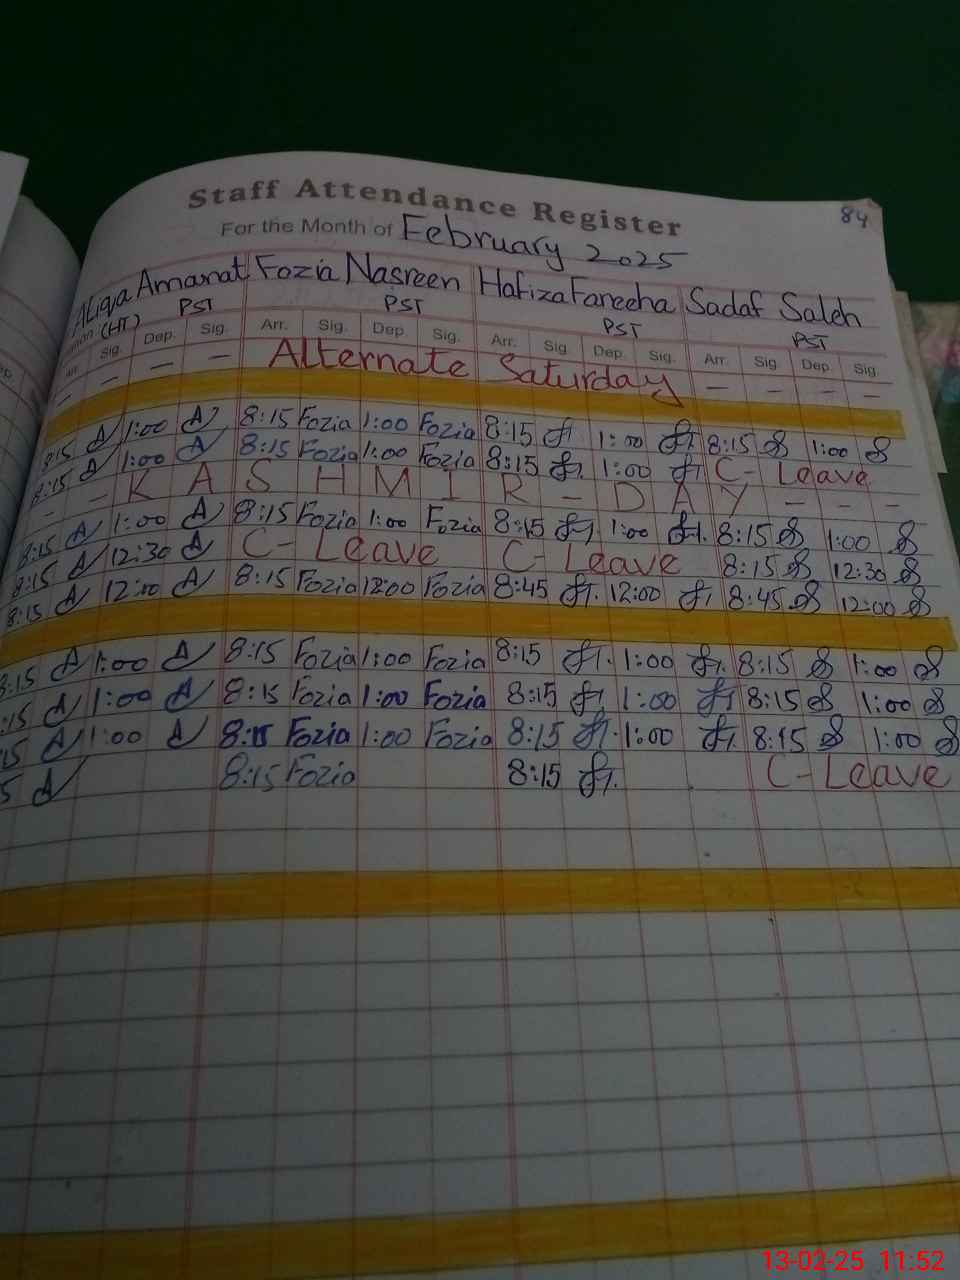 84
Staff Attendance Register
For the Month of February 2025
Aliqa Amanat Fozia Nasreen Hafiza Fareeha Sadaf Saleh
(HT) PST PST PST PST
Arr. Sig. Dep. Sig. Arr. Sig. Dep. Sig. Arr. Sig Dep. Sig. Arr. Sig Dep. Sig.
— — — — Alternate Saturday — — — —
8:15 A 1:00 A 8:15 Fozia 1:00 Fozia 8:15 1:00 8:15 S 1:00 S
8:15 A 1:00 A 8:15 Fozia 1:00 Fozia 8:15 1:00 C- Leave
- - K A S H M I R - D A Y - - - -
8:15 A 1:00 A 8:15 Fozia 1:00 Fozia 8:15 1:00 8:15 S 1:00 S
8:15 A 12:30 A C- Leave C- Leave 8:15 S 12:30 S
8:15 A 12:00 A 8:15 Fozia 12:00 Fozia 8:45 12:00 8:45 S 12:00 S
8:15 A 1:00 A 8:15 Fozia 1:00 Fozia 8:15 1:00 8:15 S 1:00 S
:15 A 1:00 A 8:15 Fozia 1:00 Fozia 8:15 1:00 8:15 S 1:00 S
15 A 1:00 A 8:15 Fozia 1:00 Fozia 8:15 1:00 8:15 S 1:00 S
5 A 8:15 Fozia 8:15 C- Leave
13-02-25 11:52